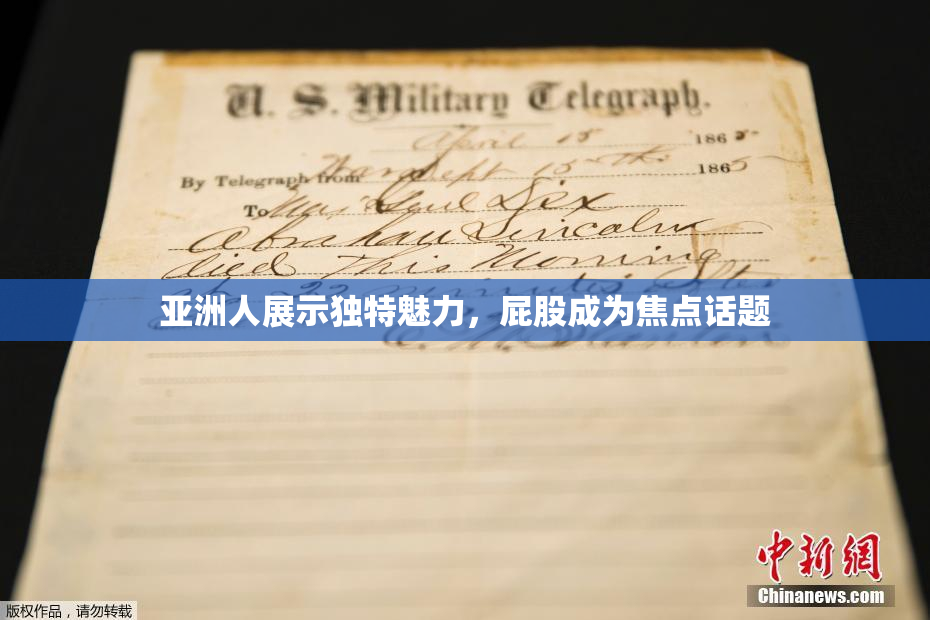 U. S. Military Telegraph.
April 15 1865
By Telegraph from War Dept 15th 1865
To Maj Genl Dix
Abraham Lincoln
died This Morning
22 minutes after
亚洲人展示独特魅力，屁股成为焦点话题
Stanton
中新網
Chinanews.com
版权作品，请勿转载